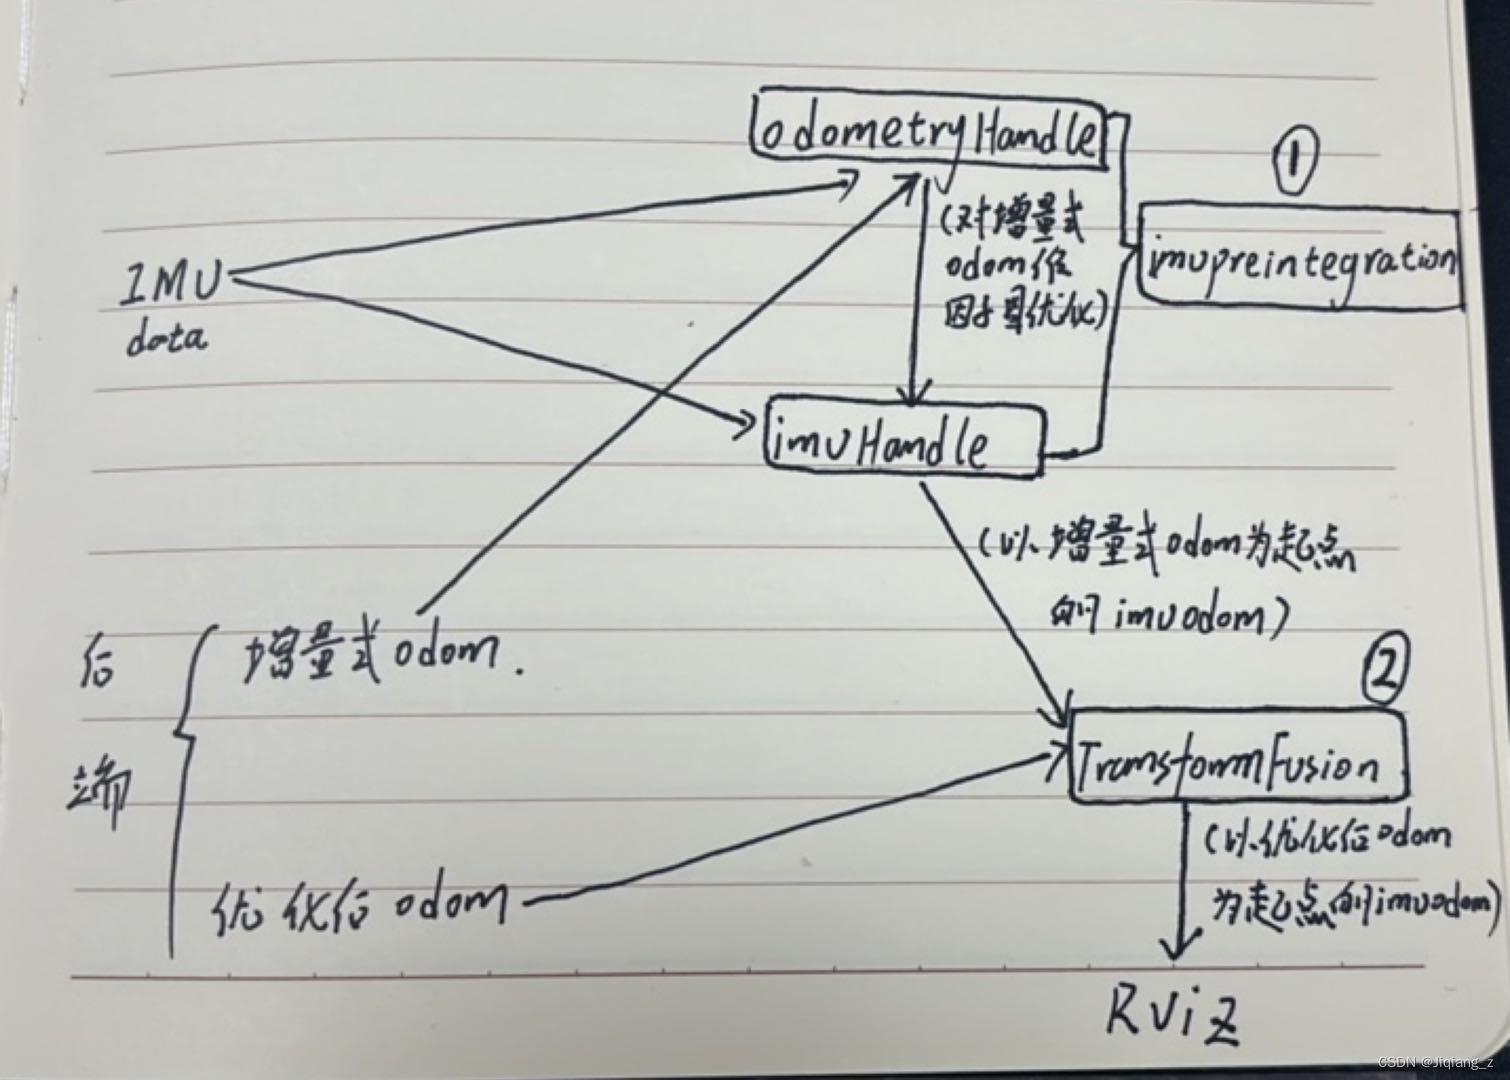 odometryHandle
①
(对增量式
odom做
因子图优化)
imupreintegration
IMU
data
imuHandle
(以增量式odom为起点
的imuodom)
后
端
增量式odom.
②
TransformFusion
(以优化后odom
为起点的imuodom)
优化后odom
Rviz
CSDN @Jiqiang_z